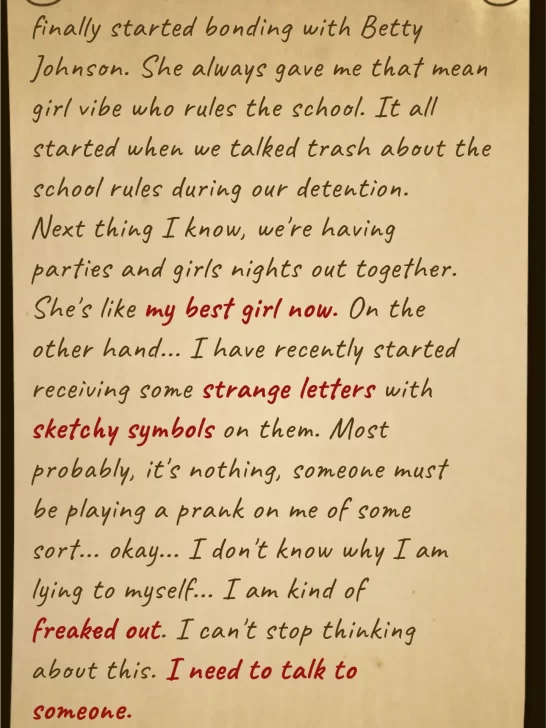 finally started bonding with Betty
Johnson. She always gave me that mean
girl vibe who rules the school. It all
started when we talked trash about the
school rules during our detention.
Next thing I know, we're having
parties and girls nights out together.
She's like my best girl now. On the
other hand... I have recently started
receiving some strange letters with
sketchy symbols on them. Most
probably, it's nothing, someone must
be playing a prank on me of some
sort... okay... I don't know why I am
lying to myself... I am kind of
freaked out. I can't stop thinking
about this. I need to talk to
someone.